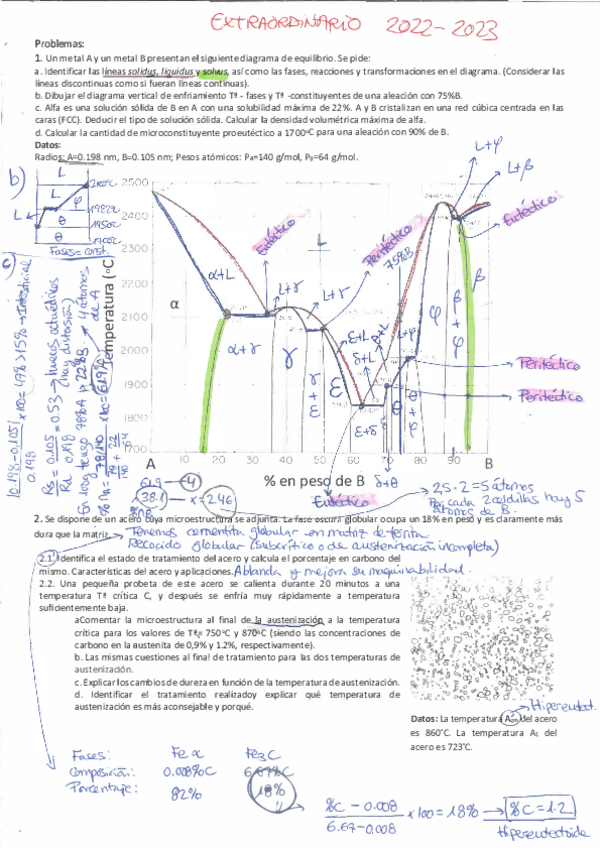 EXTRAORDINARIO 2022-2023
Problemas:
1. Un metal A y un metal B presentan el siguiente diagrama de equilibrio. Se pide:
a. Identificar las líneas solidus, liquidus y solvus, así como las fases, reacciones y transformaciones en el diagrama. (Considerar las
líneas discontinuas como si fueran líneas continuas).
b. Dibujar el diagrama vertical de enfriamiento Tª - fases y Tª -constituyentes de una aleación con 75%B.
c. Alfa es una solución sólida de B en A con una solubilidad máxima de 22%. A y B cristalizan en una red cúbica centrada en las
caras (FCC). Deducir el tipo de solución sólida. Calcular la densidad volumétrica máxima de alfa.
d. Calcular la cantidad de microconstituyente proeutéctico a 1700°C para una aleación con 90% de B.
Datos:
Radios: A=0.198 nm, B=0.105 nm; Pesos atómicos: PA=140 g/mol, PB=64 g/mol.
b)
L
L
φ
θ
θ
1982°C
1950°C
1700°C
Fases = const.
c)
Rs = 0.105 = 0.53 → huecos octaédricos
Rd 0.198
(hay distorsión)
En 100g tengo 78%A y 22%B
4 átomos de A
Temperatura (°C)
2500
2400
2300
2200
2100
2000
1900
1800
1700
α
α+L
α+γ
Eutéctico
L+γ
L
L+γ
γ
γ+ε
Peritéctico
75%B
ε+L
δ+L
ε+δ
L+φ
L+φ
L+β
Eutéctico
φ
β+φ
β
θ
Peritéctico
Peritéctico
A
% en peso de B
B
δ+θ
Eutéctico
61.9 — 4
38.1 — x = 2.46
%B
2.5·2=5 átomos
Por cada 2 celdillas hay 5
átomos de B.
2. Se dispone de un acero cuya microestructura se adjunta. La fase oscura globular ocupa un 18% en peso y es claramente más
dura que la matriz.
Tenemos cementita globular en matriz de ferrita
Recocido globular (subcrítico o de austenización incompleta)
2.1. Identifica el estado de tratamiento del acero y calcula el porcentaje en carbono del
mismo. Características del acero y aplicaciones. Ablanda y mejora su maquinabilidad.
2.2. Una pequeña probeta de este acero se calienta durante 20 minutos a una
temperatura Tª crítica C, y después se enfría muy rápidamente a temperatura
suficientemente baja.
a Comentar la microestructura al final de la austenización a la temperatura
crítica para los valores de Tª= 750°C y 870°C (siendo las concentraciones de
carbono en la austenita de 0,9% y 1.2%, respectivamente).
b. Las mismas cuestiones al final de tratamiento para las dos temperaturas de
austenización.
c. Explicar los cambios de dureza en función de la temperatura de austenización.
d. Identificar el tratamiento realizado y explicar qué temperatura de
austenización es más aconsejable y porqué.
Hipereutect.
Datos: La temperatura Acm del acero
es 860°C. La temperatura A1 del
acero es 723°C.
Fases: Fe α Fe3C
Composición: 0.008%C 6.67%C
Porcentaje: 82% 18%
%C - 0.008 x100 = 18% → %C = 1.2
6.67-0.008
Hipereutectoide